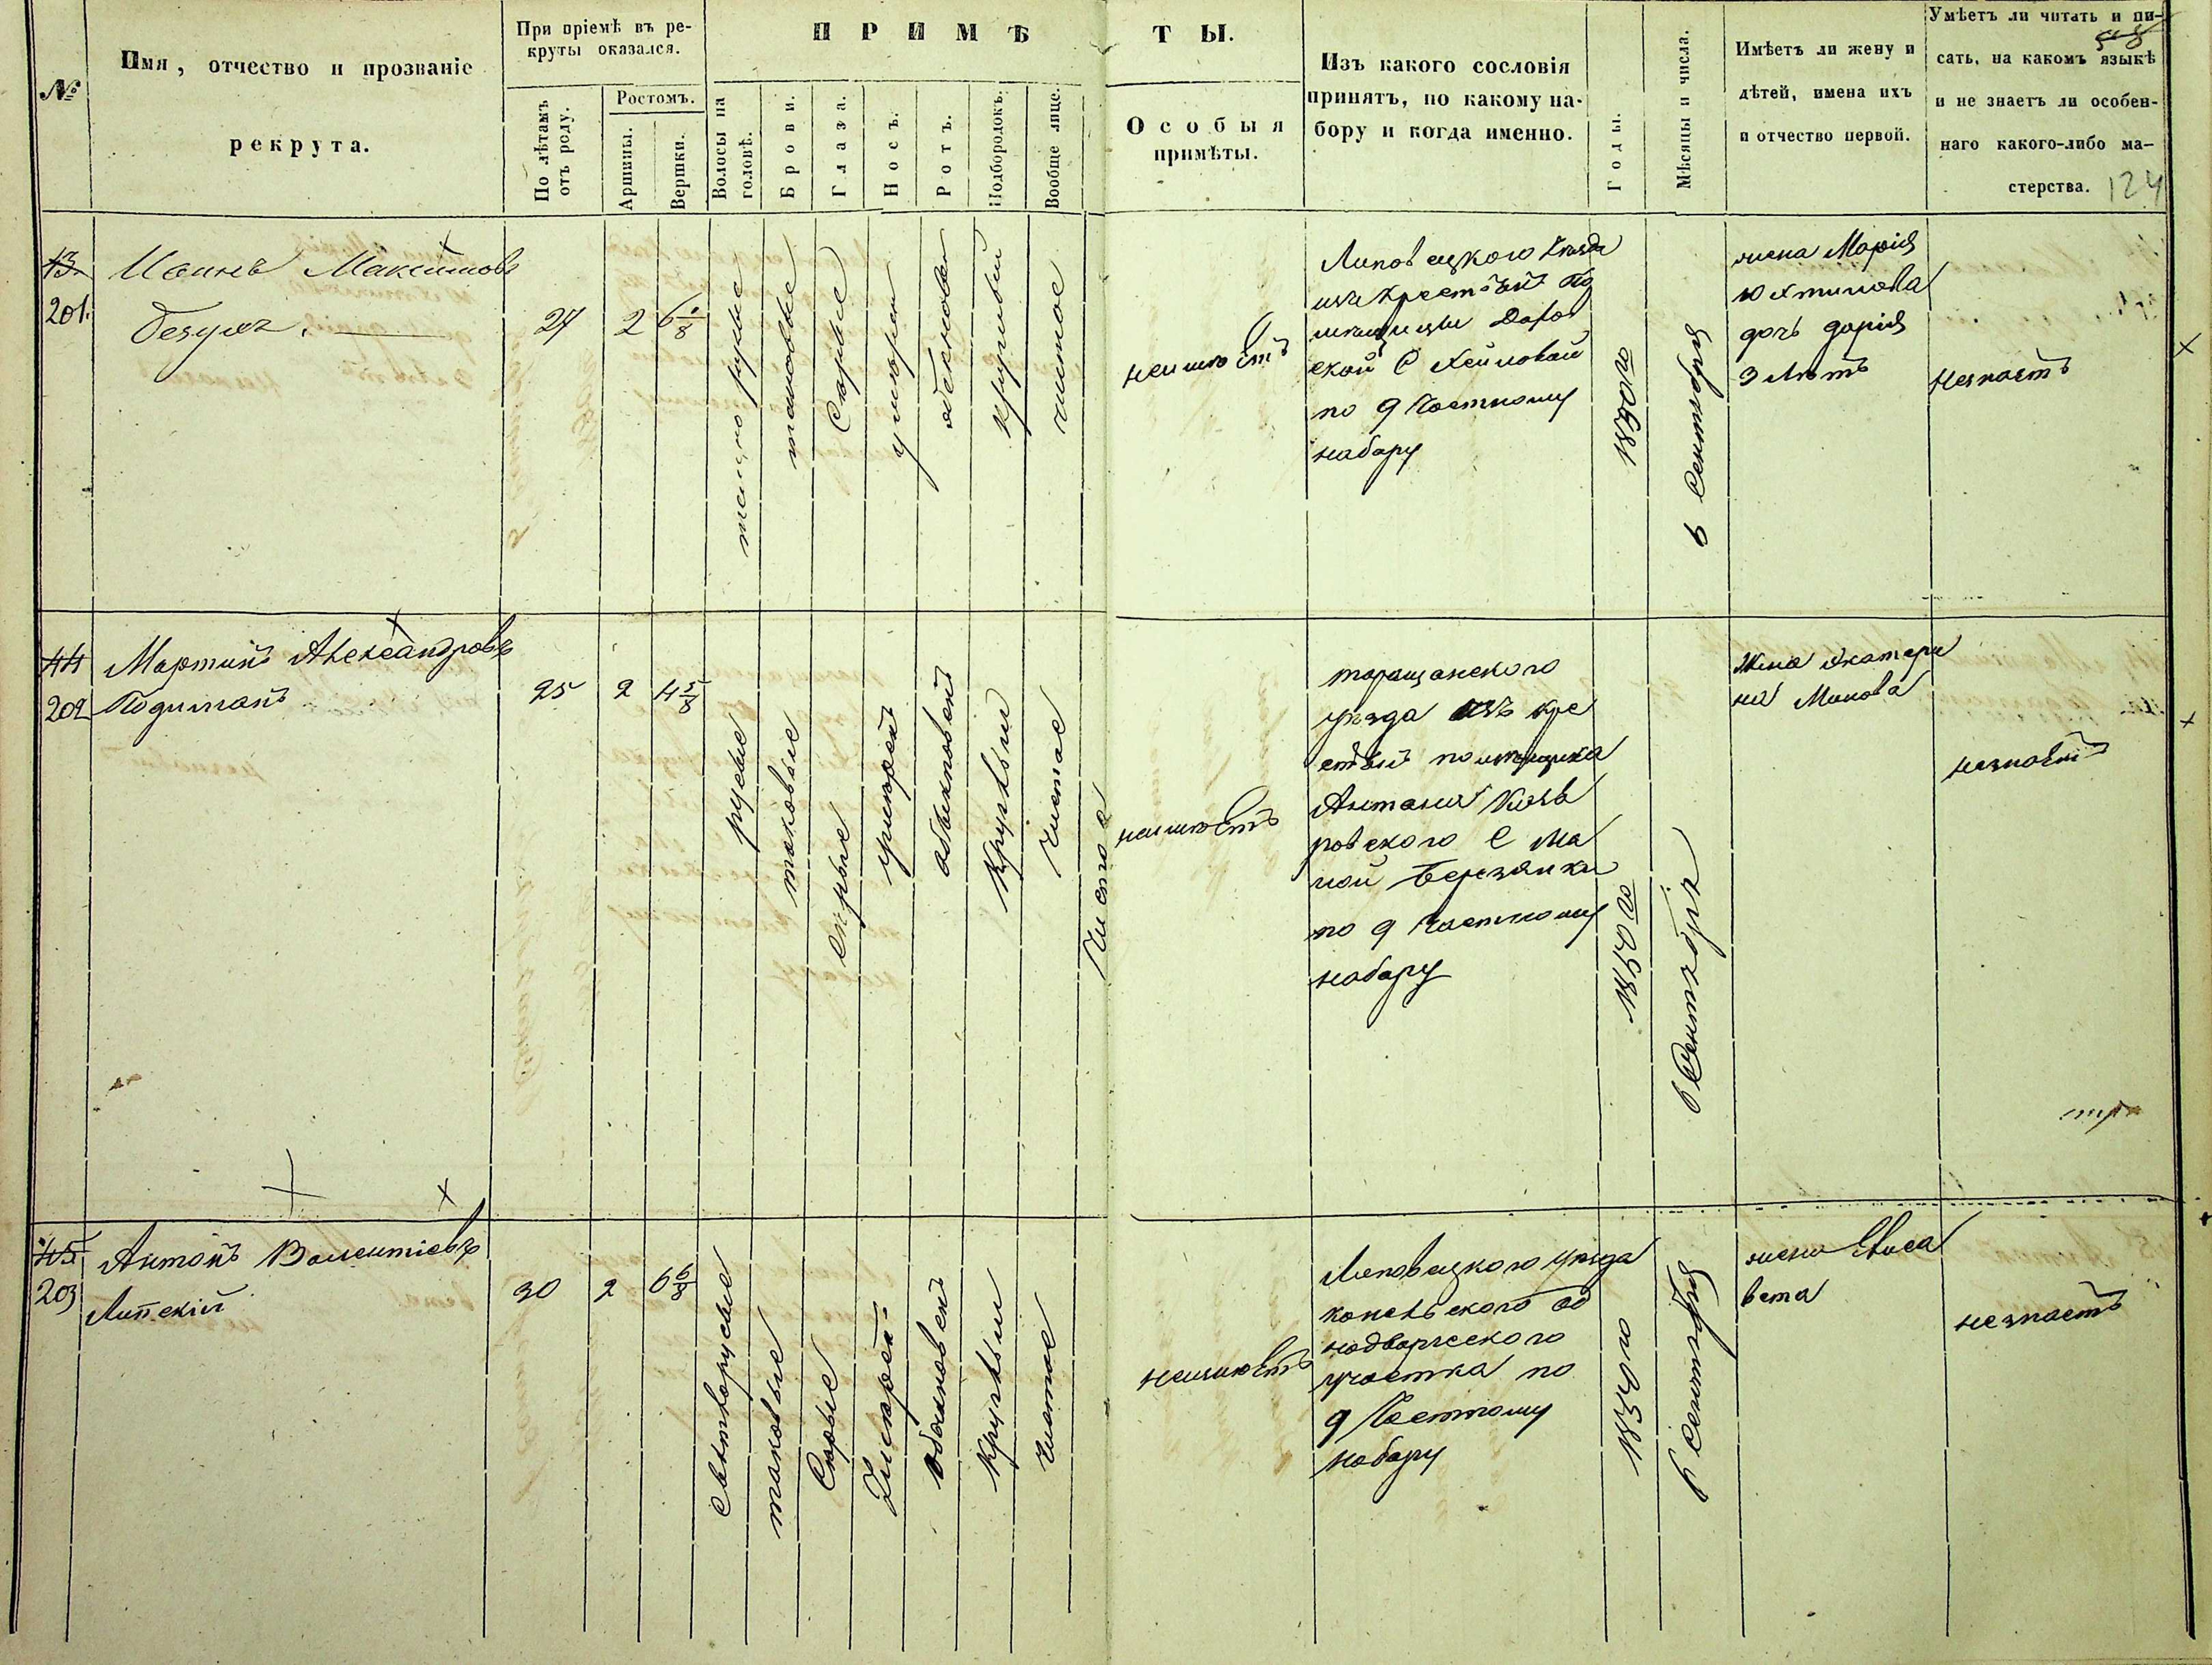 №
Имя, отчество и прозваніе
рекрута.
При пріемѣ въ ре-
круты оказался.
По лѣтамъ
отъ роду.
Ростомъ.
Аршины.
Вершки.
ПРИМѢТЫ.
Волосы на
головѣ.
Брови.
Глаза.
Носъ.
Ротъ.
Подбородокъ.
Вообще лице.
Особыя
примѣты.
Изъ какого сословія
принятъ, по какому на-
бору и когда именно.
Годы.
Мѣсяцы и числа.
Имѣетъ ли жену и
дѣтей, имена ихъ
и отчество первой.
Умѣетъ ли читать и пи-
сать, на какомъ языкѣ
и не знаетъ ли особен-
наго какого-либо ма-
стерства.
58
124
43
201.
Максимовъ
27
2
6 1/8
русые
таковые
Серые
умерен
круглый
чистое
неимѣетъ
Липовецкого уѣзда
изъ крестьянъ по
мѣщицы
ской С
по 9 частному
набору
1850 го
6 Сентября
жена Марія
дочь Дарія
3 лѣтъ
незнаетъ
44
202
Мартинъ Александровъ
25
2
4 5/8
русые
таковые
серые
умерен
обыкновен
Круглый
Чистое
Чистое
неимѣетъ
таращанского
уѣзда изъ кре
стьянъ помѣщика
Антонія
ровского С Ма
лой Березянки
по 9 частному
набору
1850 го
6 Сентября
Жена Екатери
на
незнаетъ
45
203
Антонъ Валентіевъ
Липскій
30
2
6 6/8
свѣтлорусые
таковые
Серые
Умерен:
обыкновен
Круглый
чистое
неимѣетъ
Липовецкого уѣзда
конельского од
нодворческого
участка по
9 Частному
набору
1850 го
6 Сентября
жена Елиса
вета
незнаетъ